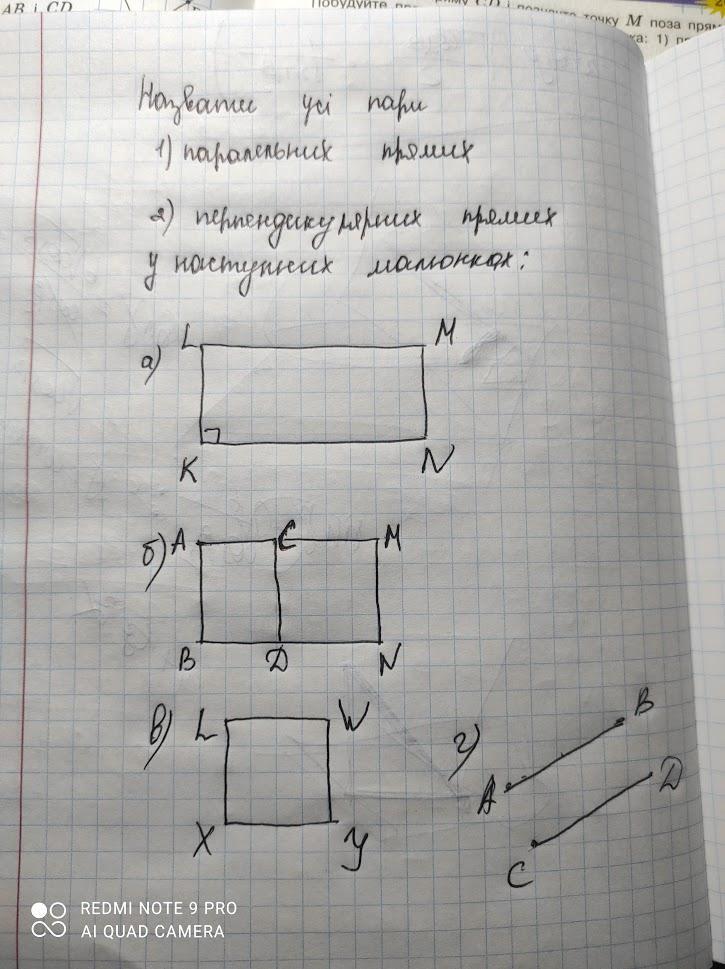 AB i CD
Побудуйте
CD і позначте точку M поза прям
ка: 1) п
Назвати усі пари
1) паралельних прямих
2) перпендикулярних прямих
у наступних малюнках:
а) L M
K N
б) A C M
B D N
в) L W
X Y
г) B
A D
C
REDMI NOTE 9 PRO
AI QUAD CAMERA